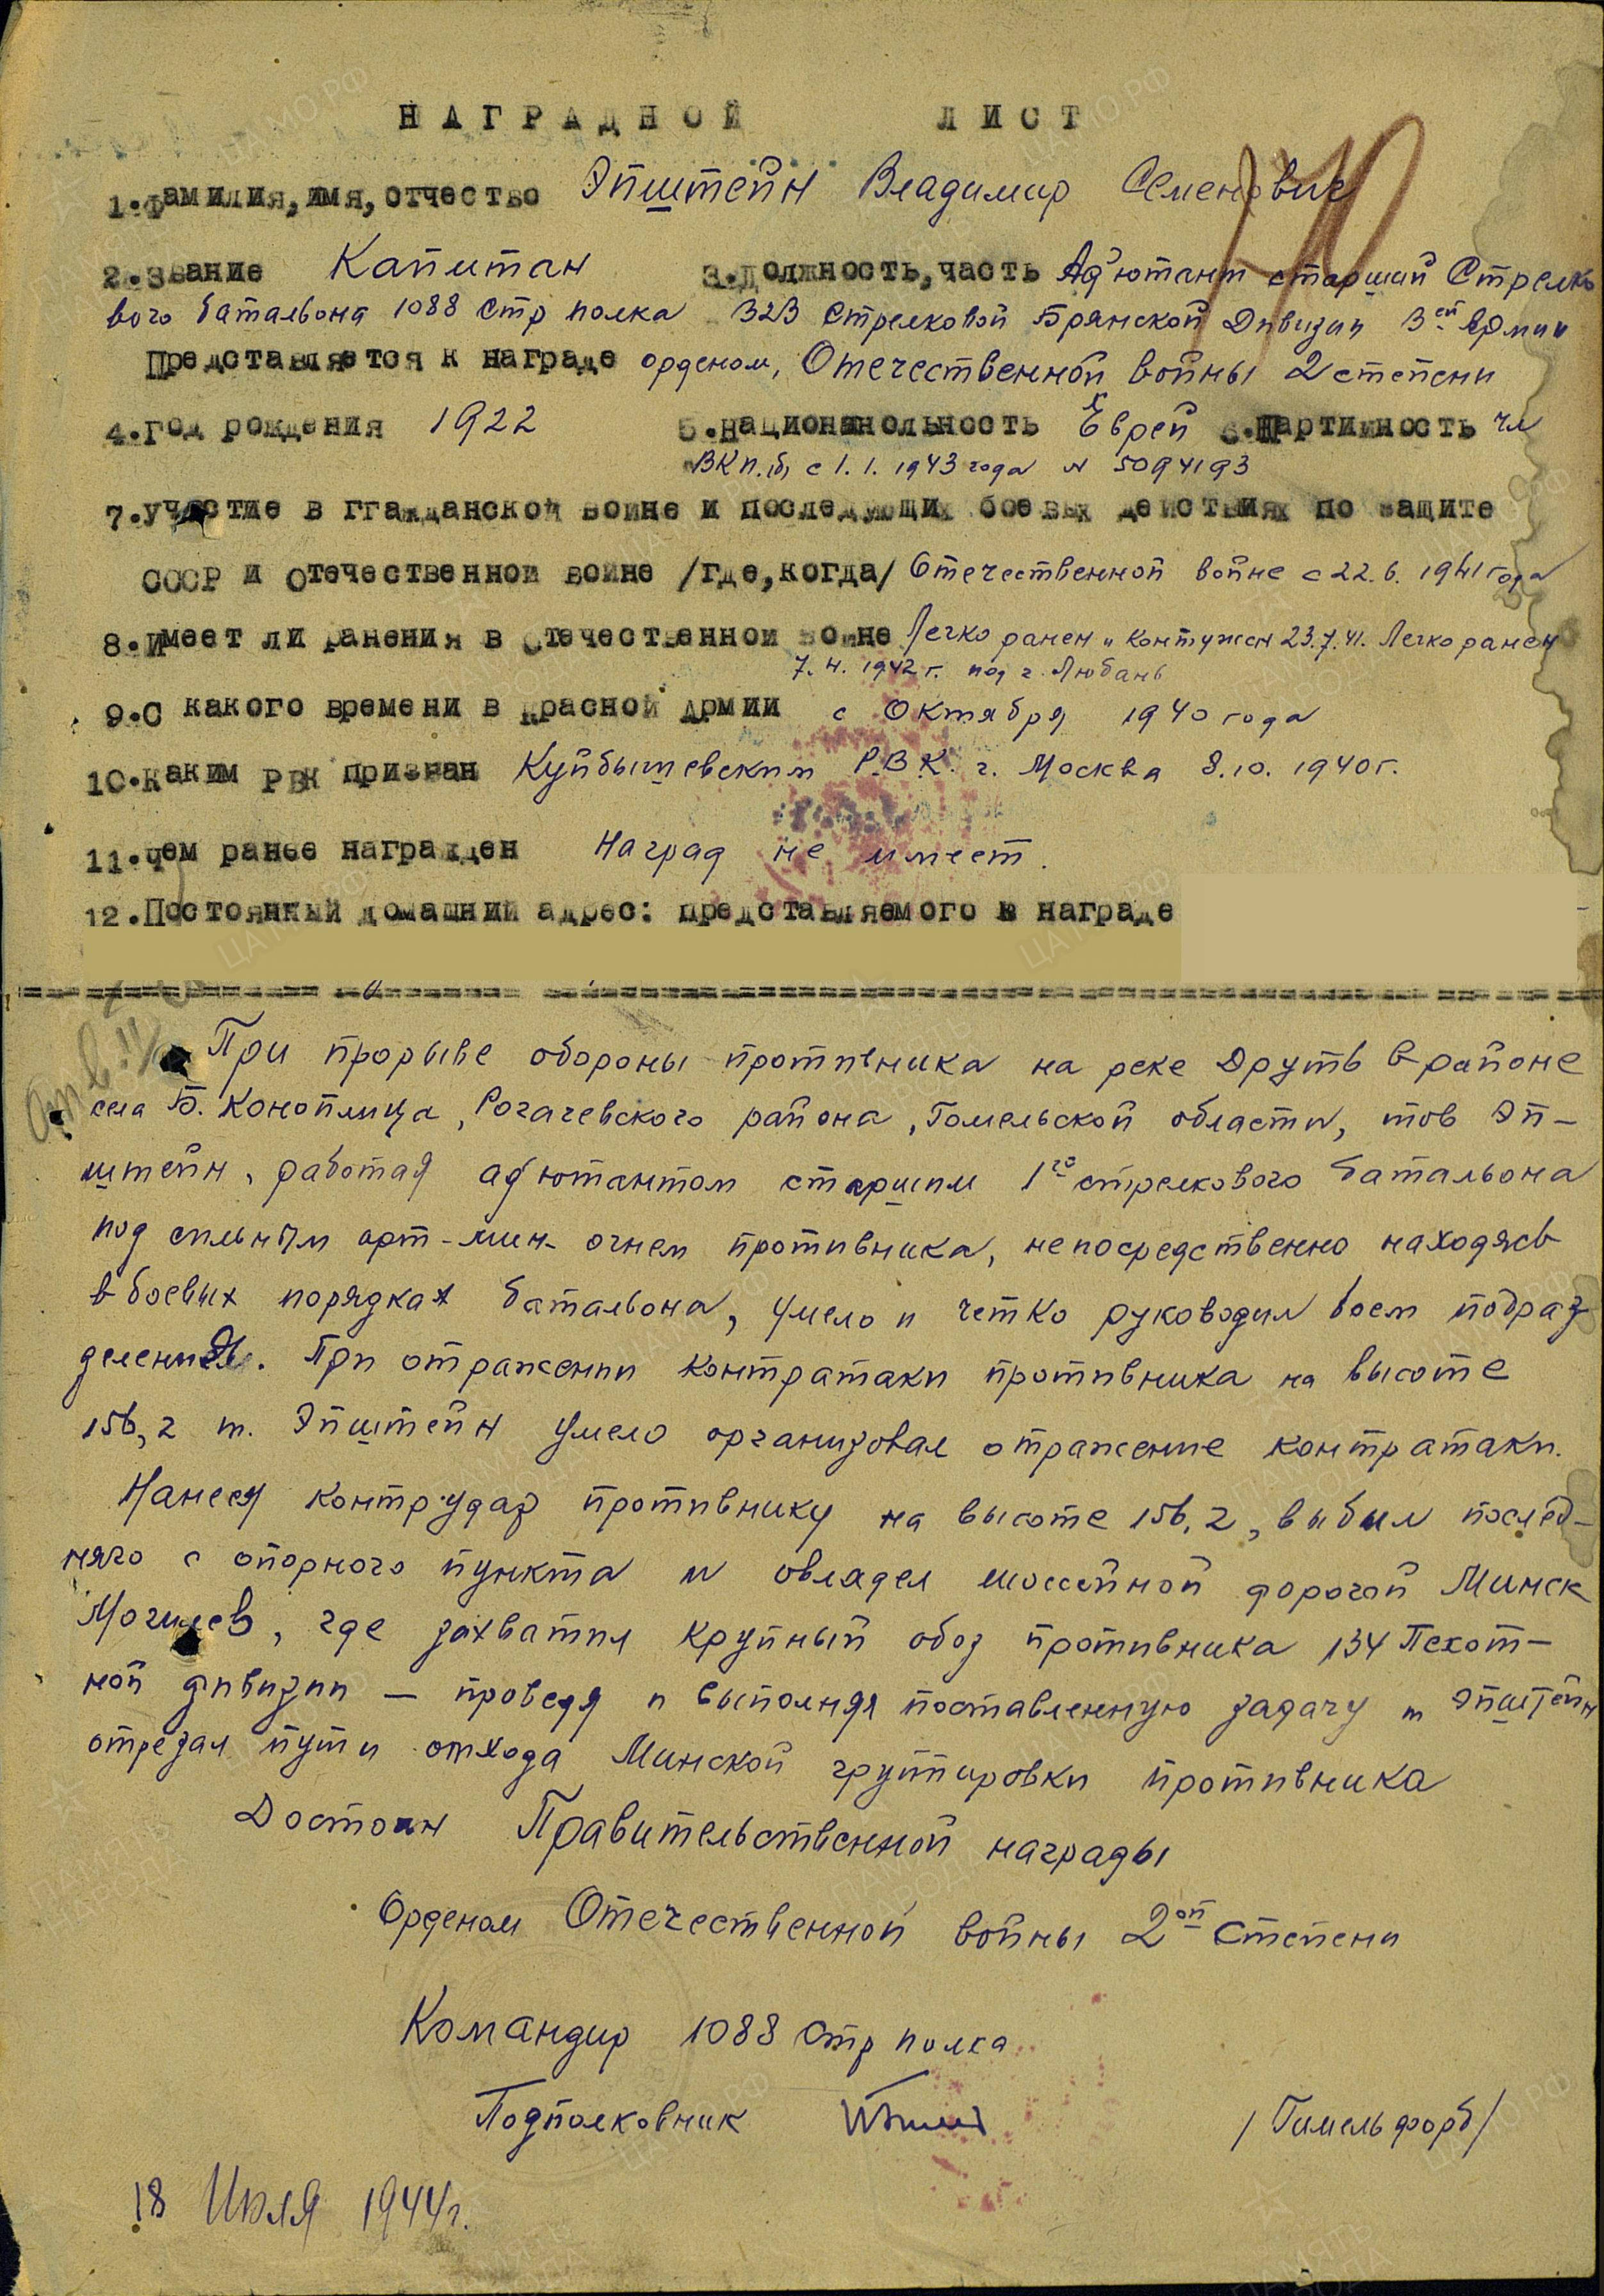 НАГРАДНОЙ ЛИСТ
1.Фамилия, имя, отчество Эпштейн Владимир Семенович
2.Звание Капитан 3.Должность, часть Ад'ютант старший Стрелко
вого батальона 1088 Стр полка 323 Стрелковой Брянской Дивизии 3ей Армии
Представляется к награде орденом, Отечественной войны 2 степени
4.Год рождения 1922 5.Национальность Еврей 6.Партийность чл
ВКП.(б) с 1.1.1943 года N 5094193
7.участие в гражданской войне и последующих боевых действиях по защите
СССР и отечественной войне /где, когда/ Отечественной войне с 22.6.1941 года
8.Имеет ли ранения в отечественной войне Легко ранен и контужен 23.7.41. Легко ранен
7.4.1942 г. под г. Любань
9.С какого времени в Красной Армии с Октября 1940 года
10.Каким РВК призван Куйбышевским Р.В.К. г. Москва 8.10.1940 г.
11.Чем ранее награжден Наград не имеет.
12.Постоянный домашний адрес: представляемого к награде
При прорыве обороны противника на реке Друть в районе
села Б. Коноплица, Рогачевского района, Гомельской области, тов Эп-
штейн, работая ад'ютантом старшим 1го стрелкового батальона
под сильным арт-мин- огнем противника, непосредственно находясь
в боевых порядках батальона, умело и четко руководил боем подраз
делений. При отражении контратаки противника на высоте
156,2 т. Эпштейн умело организовал отражение контратаки.
Нанеся контрудар противнику на высоте 156,2, выбил послед-
няго с опорного пункта и овладел шоссейной дорогой Минск
Могилев, где захватил крупный обоз противника 134 Пехот-
ной дивизии — проведя и выполняя поставленную задачу т Эпштейн
отрезал пути отхода Минской группировки противника
Достоин Правительственной награды
Орденом Отечественной войны 2ой Степени
Командир 1088 Стр полка
Подполковник /Гимельфорб/
18 Июля 1944 г.